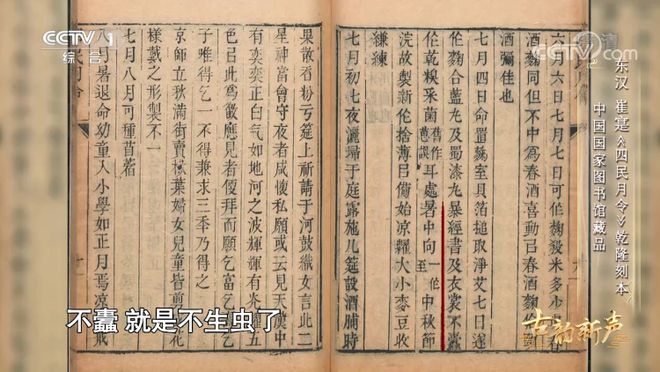 CCTV 1
综合
CCTV.com
东汉 崔寔《四民月令》乾隆刻本
中国国家图书馆藏品
六日七月七日可作麴殺米多少
酒麴同但不中爲春酒喜動弓春酒麴作
酒彌佳也
七月四日命置麴室具箔搥取淨艾七日遂
作麴合藍丸及蜀漆丸暴經書及衣裳不蠹
作乾糗采葈舊作葱誤耳處暑中向一作至中秋節
浣故製新作袷薄弓備始凉糶大小麥豆收
縑練
七月初七夜灑掃于庭露施几筵設酒脯時
果散香粉于筵上祈請于河鼓織女言此二
星神當會守夜者咸懷私願或云見天漢中
有奕奕正白气如地河之波輝輝有光耀五
色以此爲徵應見者便拜而願乞富乞
子唯得乞一不得兼求三季乃得之
京師立秋滿街賣楸葉婦女兒童皆剪花
樣戴之形製不一
七月八月可種苜蓿
八月暑退命幼童入小學如正月焉凉戒
不蠹 就是不生虫了
古韵新声